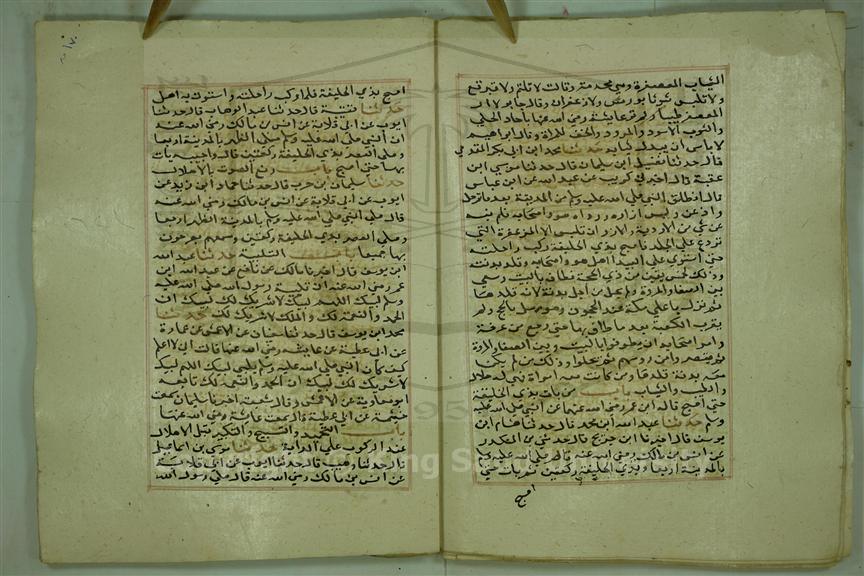 الثياب المعصفرة وهي محرمة وقالت لا تلثم ولا تتبرقع
ولا تلبس ثوبا بورس ولا زعفران وقال جابر لا ارى
المعصفر طيبا ولم تر عايشة رضي الله عنها باسا بالحلي
والثوب الاسود والمورد والخف للمراة وقال ابراهيم
لا باس ان يبدل ثيابه حدثنا محمد بن ابي بكر المقدمي
قال حدثنا فضيل ابن سليمان قال حدثنا موسى ابن
عقبة قال اخبرني كريب عن عبد الله عن ابن عباس
قال انطلق النبي صلى الله عليه وسلم من المدينة بعد ما ترجل
وادهن ولبس ازاره ورداه هو واصحابه فلم ينه
عن شي من الاردية والازر ان تلبس الا المزعفرة التي
تردع على الجلد فاصبح بذي الحليفة ركب راحلته
حتى استوى على البيدا اهل هو واصحابه وقلد بدنته
وذلك لخمس بقين من ذي الحجة فطاف بالبيت وسعى
بين الصفا والمروة ولم يحل من اجل بدنه لانه قلدها
ثم نزل باعلى مكة عند الحجون وهو مهل بالحج ولم
يقرب الكعبة بعد طوافه بها حتى رجع من عرفة
وامر اصحابه ان يطوفوا بالبيت وبين الصفا والمروة
ثم يقصروا من رؤسهم ثم يحلوا وذلك لمن لم يكن
معه بدنة قلدها ومن كانت معه امراته فهي له حلال
والطيب والثياب باب من بات بذي الحليفة
حتى اصبح قاله ابن عمر رضي الله عنهما عن النبي صلى الله عليه
وسلم حدثنا عبد الله ابن محمد قال حدثنا هشام ابن
يوسف قال اخبرنا ابن جريج قال حدثني بن المنكدر
عن انس بن مالك رضي الله عنه قال صلى الله عليه وسلم
بالمدينة اربعا وبذي الحليفة ركعتين ثم بات حتى
اصبح
١٧٠
اصبح بذي الحليفة فلما ركب راحلته واستوت به اهل
حدثنا قتيبة قال حدثنا عبد الوهاب قال حدثنا
ايوب عن ابي قلابة عن انس بن مالك رضي الله عنه
ان النبي صلى الله عليه وسلم صلى الظهر بالمدينة اربعا
وصلى العصر بذي الحليفة ركعتين قال واحسبه بات
بها حتى اصبح باب رفع الصوت بالاهلال
حدثنا سليمان بن حرب قال حدثنا حماد ابن زيد عن
ايوب عن ابي قلابة عن انس بن مالك رضي الله عنه
قال صلى النبي صلى الله عليه وسلم بالمدينة الظهر اربعا
وصلى العصر بذي الحليفة ركعتين وسمعتهم يصرخون
بها جميعا باب التلبية حدثنا عبد الله
ابن يوسف قال اخبرنا مالك عن نافع عن عبد الله ابن
عمر رضي الله عنه ان تلبية رسول الله صلى الله عليه
وسلم لبيك اللهم لبيك لا شريك لك لبيك ان
الحمد والنعمة لك والملك لا شريك لك حدثنا
محمد ابن يوسف قال حدثنا سفيان عن الاعمش عن عمارة
عن ابي عطية عن عايشة رضي الله عنها قالت اني لاعلم
كيف كان النبي صلى الله عليه وسلم يلبي لبيك اللهم لبيك
لا شريك لك لبيك ان الحمد والنعمة لك تابعه
ابو معاوية عن الاعمش وقال شعبة اخبرنا سليمان سمعت
خيثمة عن ابي عطية قال سمعت عايشة رضي الله عنها
باب التحميد والتسبيح والتكبير قبل الاهلال
عند الركوب على الدابة حدثنا موسى بن اسماعيل
قال حدثنا وهيب قال حدثنا ايوب عن ابي قلابة
عن انس بن مالك رضي الله عنه قال صلى رسول الله